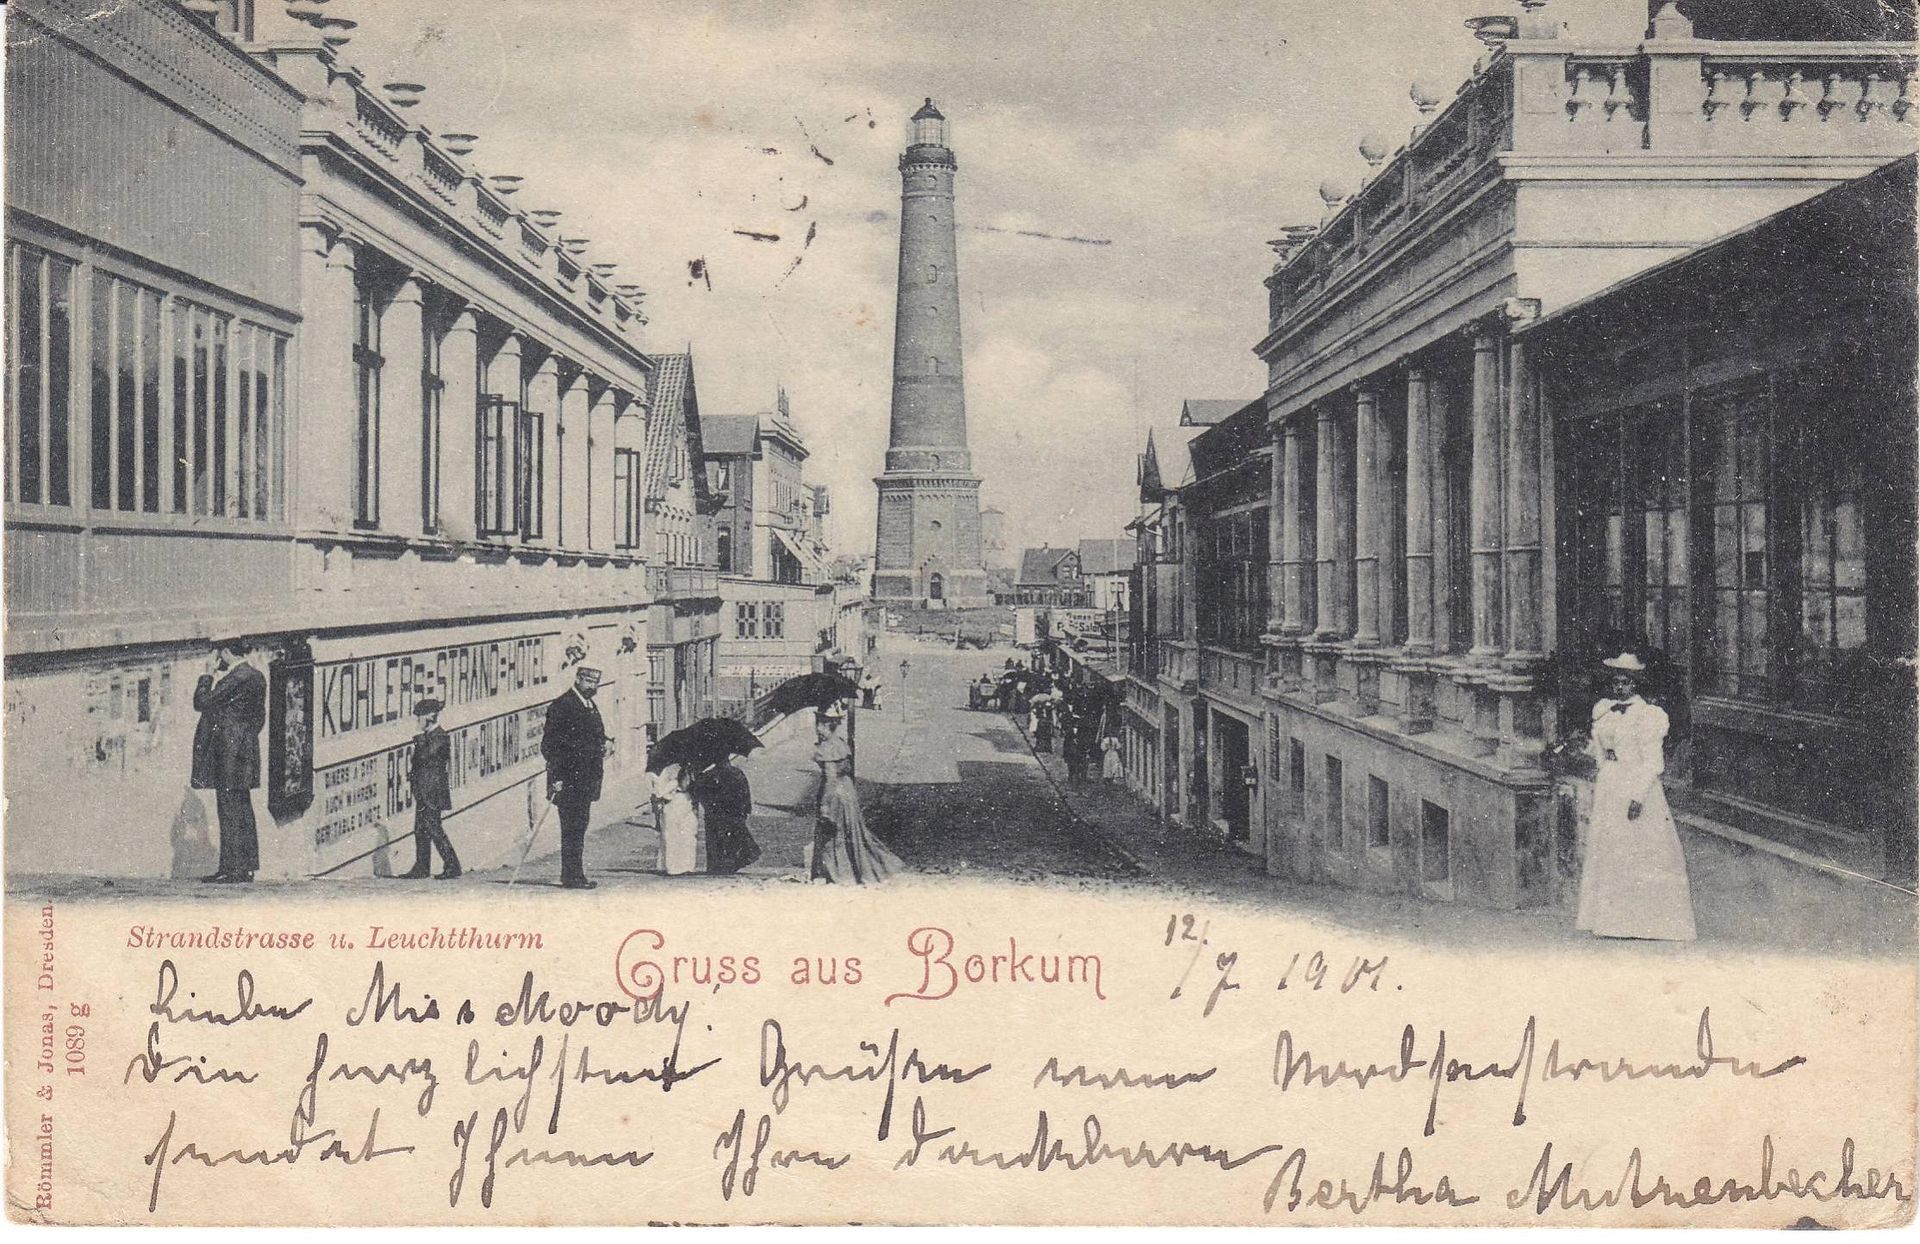 KÖHLERS=STRAND=HOTEL
RES
NT U. BILLARD
DINERS A PART
AUCH WÄHREND
DER TABLE D'HOTE
Strandstrasse u. Leuchtthurm
Gruss aus Borkum
12./7. 1901.
Liebe Miss Moody!
Die herzlichsten Grüße vom Nordseestrande
sendet Ihnen Ihre dankbare
Bertha Mutzenbecher
Römmler & Jonas, Dresden.
1089 g